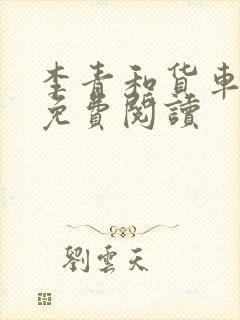 李青和货車
免費閱讀
劉雲天